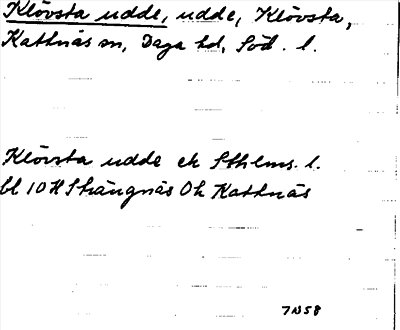 Klövsta udde, udde, Klövsta,
Kattnäs sn, Daga hd, Söd. l.
Klövsta udde ek Sthlms. l.
bl 10H Strängnäs Ok Kattnäs
7N58